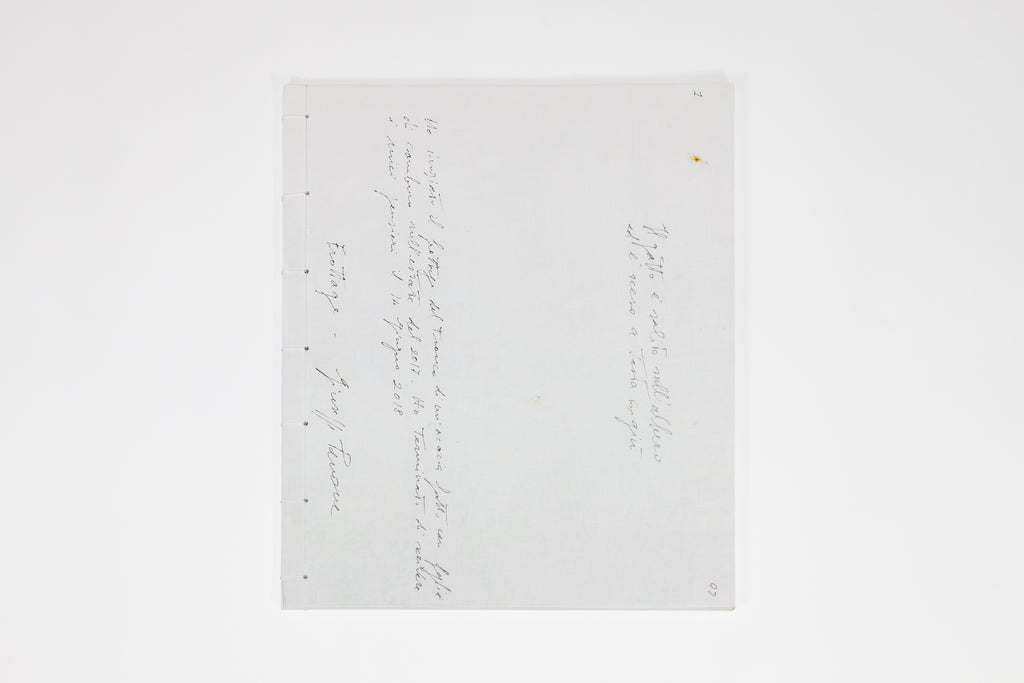 1
07
Il gatto è salito sull'albero
ed è sceso a testa in giù
Ho iniziato il frottage del tronco di un'acacia fatto con foglie
di sambuco nell'estate del 2017. Ho terminato di scrivere
i miei pensieri il in giugno 2018
Frottage - Giuseppe Penone